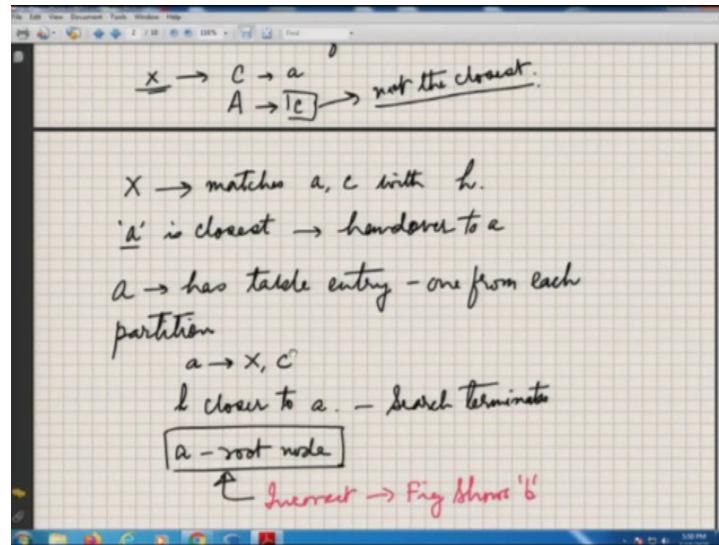 File Edit View Document Tools Window Help
2 / 10 118% Find
x → C → a
A → c → not the closest.
X → matches a, c with h.
'a' is closest → handover to a
a → has table entry - one from each
partition
a → X, c
h closer to a. - Search terminates
a - root node
Incorrect → Fig shows 'b'
5:50 PM